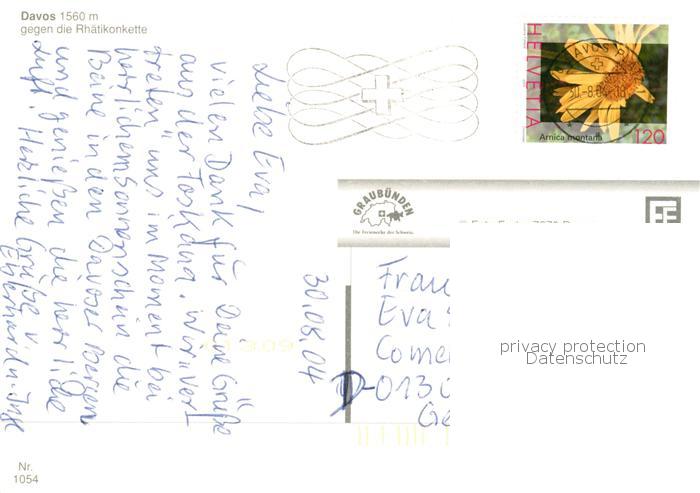 Davos 1560 m
gegen die Rhätikonkette
Liebe Eva,
vielen Dank für Deine Grüße
aus der Toskana. Wir "ver-
treten" uns im Moment bei
herrlichem Sonnenschein die
Beine in den Davoser Bergen
und genießen die herrliche
Luft. Herzliche Grüße v.
Eberhard u. Inge
30.08.04
HELVETIA
Arnica montana
120
DAVOS PL
30.-8.04-18
GRAUBÜNDEN
Die Ferienecke der Schweiz.
Frau
Eva
Come
D-013
Ge
privacy protection
Datenschutz
Nr.
1054